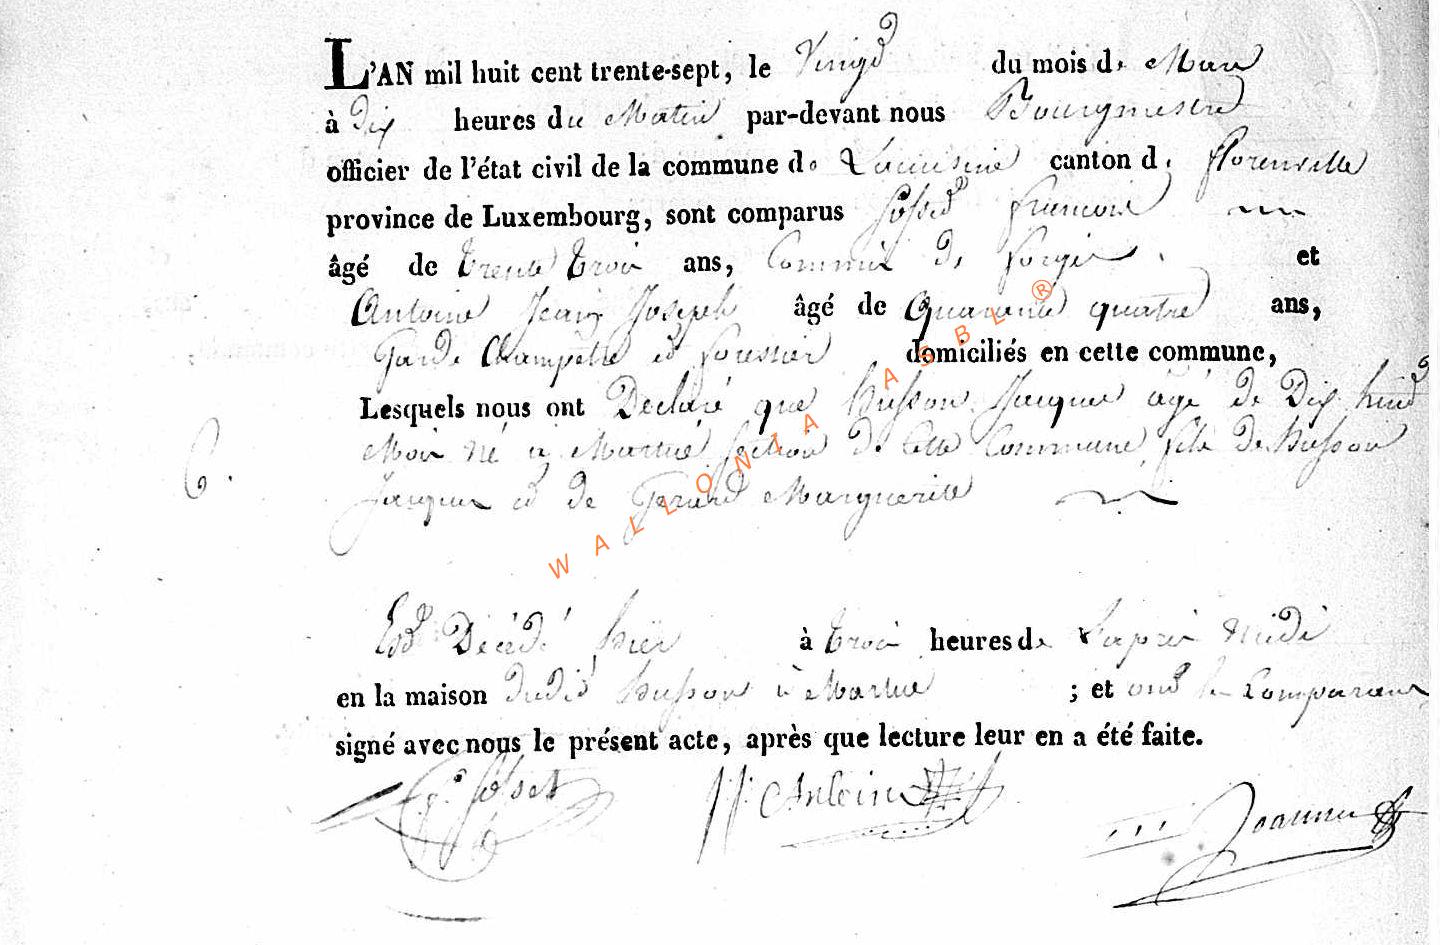 L'AN mil huit cent trente-sept, le Vingt du mois de Mars
à Dix heures du Matin par-devant nous Bourgmestre
officier de l'état civil de la commune de Lacuisine canton de florenville
province de Luxembourg, sont comparus Josset francois
âgé de trente trois ans, Commis de forges et
Antoine Jean Joseph âgé de Quarante quatre ans,
Garde Champêtre et forestier domiciliés en cette commune,
Lesquels nous ont Declaré que Husson Jacques agé de Dix huit
6.
Mois né a Martué section de Cette Commune, fils de Husson
Jacques et de Gerard Marguerite
Est Décédé hier à trois heures de L'après Midi
en la maison dudit husson à Martué ; et ont les Comparans
signé avec nous le présent acte, après que lecture leur en a été faite.
Josset JJ. Antoine Joannes
WALLONIA ASBL ®